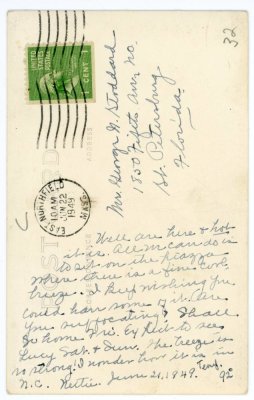 32
UNITED STATES POSTAGE
1 CENT 1
Mrs George H. Stoddard
1350 Fifth Ave. No.
St. Petersburg
Florida.
EAST NORTHFIELD
MASS.
JUN 22
10 AM
1949
POST CARD
ADDRESS
Well are here & hot
it is. All M can do is
to sit on the piazza
where there is a fine cool
breeze. I keep wishing you
could have some of it. Are
you suffocating? I shall
go home Fri. Ex Reit to see
Lucy Sat. & Sun. The breeze is
so strong! I wonder how it is in
N.C. Nettie June 21, 1949. Temp.
92